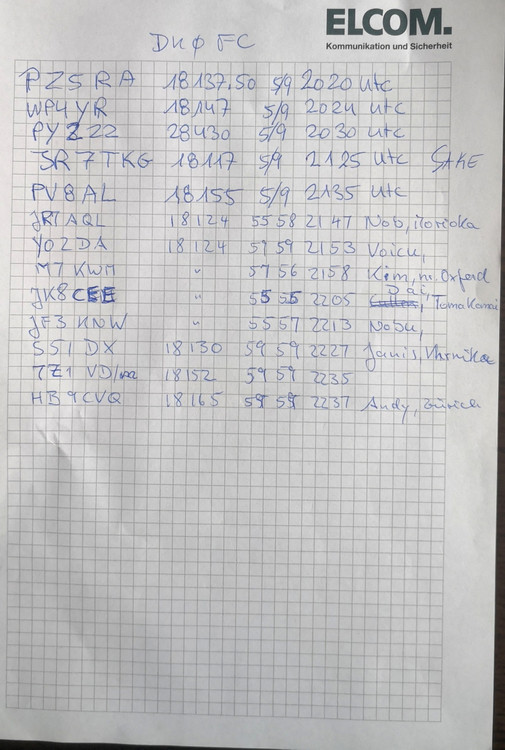 ELCOM.
Kommunikation und Sicherheit
DKØFC
PZ5RA 18137.50 5/9 2020 utc
WP4YR 18147 5/9 2024 utc
PY2ZZ 28430 5/9 2030 utc
JR7TKG 18117 5/9 2125 utc SAKE
PV8AL 18155 5/9 2135 utc
JR7AQL 18124 55 58 2147 Nob, Morioka
YO2DA 18124 59 59 2153 Voicu,
M7KWM " 57 56 2158 Kim, nr. Oxford
JK8CEE " 55 55 2205 Dai, Tomakomai
JF3KNW " 55 57 2213 Nobu,
S51DX 18130 59 59 2227 Janis, Vhrnika
18152 59 59 2235
HB9CVQ 18165 59 59 2237 Andy, Zürich